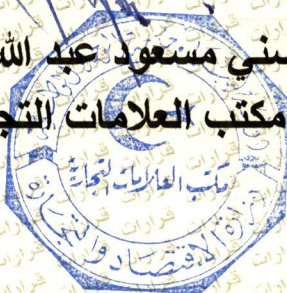 سني مسعود عبد الله
مكتب العلامات التج
مكتب العلامات التجارية
وزارة الاقتصاد والتجارة
قرارات